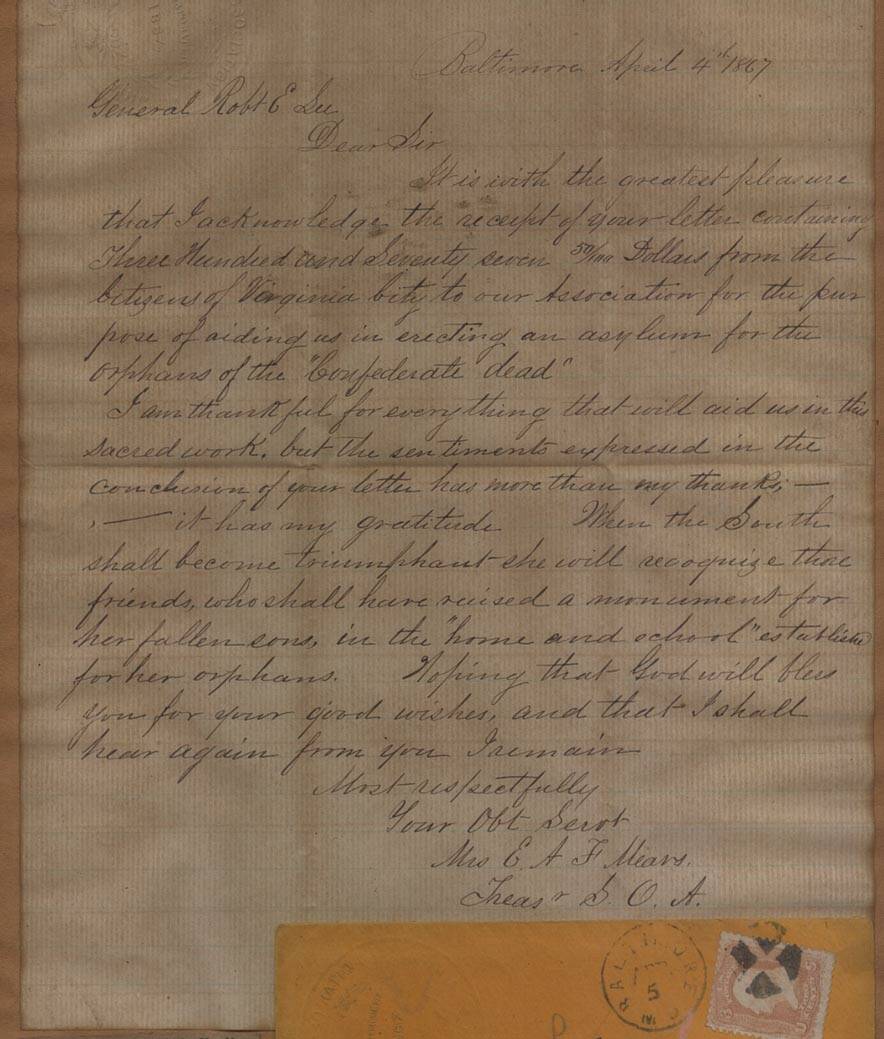 Baltimore April 4th 1867
General Robt E Lee
Dear Sir
It is with the greatest pleasure
that I acknowledge the receipt of your letter containing
Three Hundred and Seventy seven 50/100 Dollars from the
Citizens of Virginia City to our Association for the pur
pose of aiding us in erecting an asylum for the
orphans of the "Confederate dead"
I am thankful for everything that will aid us in this
sacred work, but the sentiments expressed in the
conclusion of your letter has more than my thanks; —
, — it has my gratitude When the South
shall become triumphant she will recognize those
friends, who shall have raised a monument for
her fallen sons, in the "home and school" established
for her orphans. Hoping that God will bless
you for your good wishes, and that I shall
hear again from you I remain
Most respectfully
Your Obt Servt
Mrs E A F Mears.
Treasr S. O. A.
BALTIMORE
5